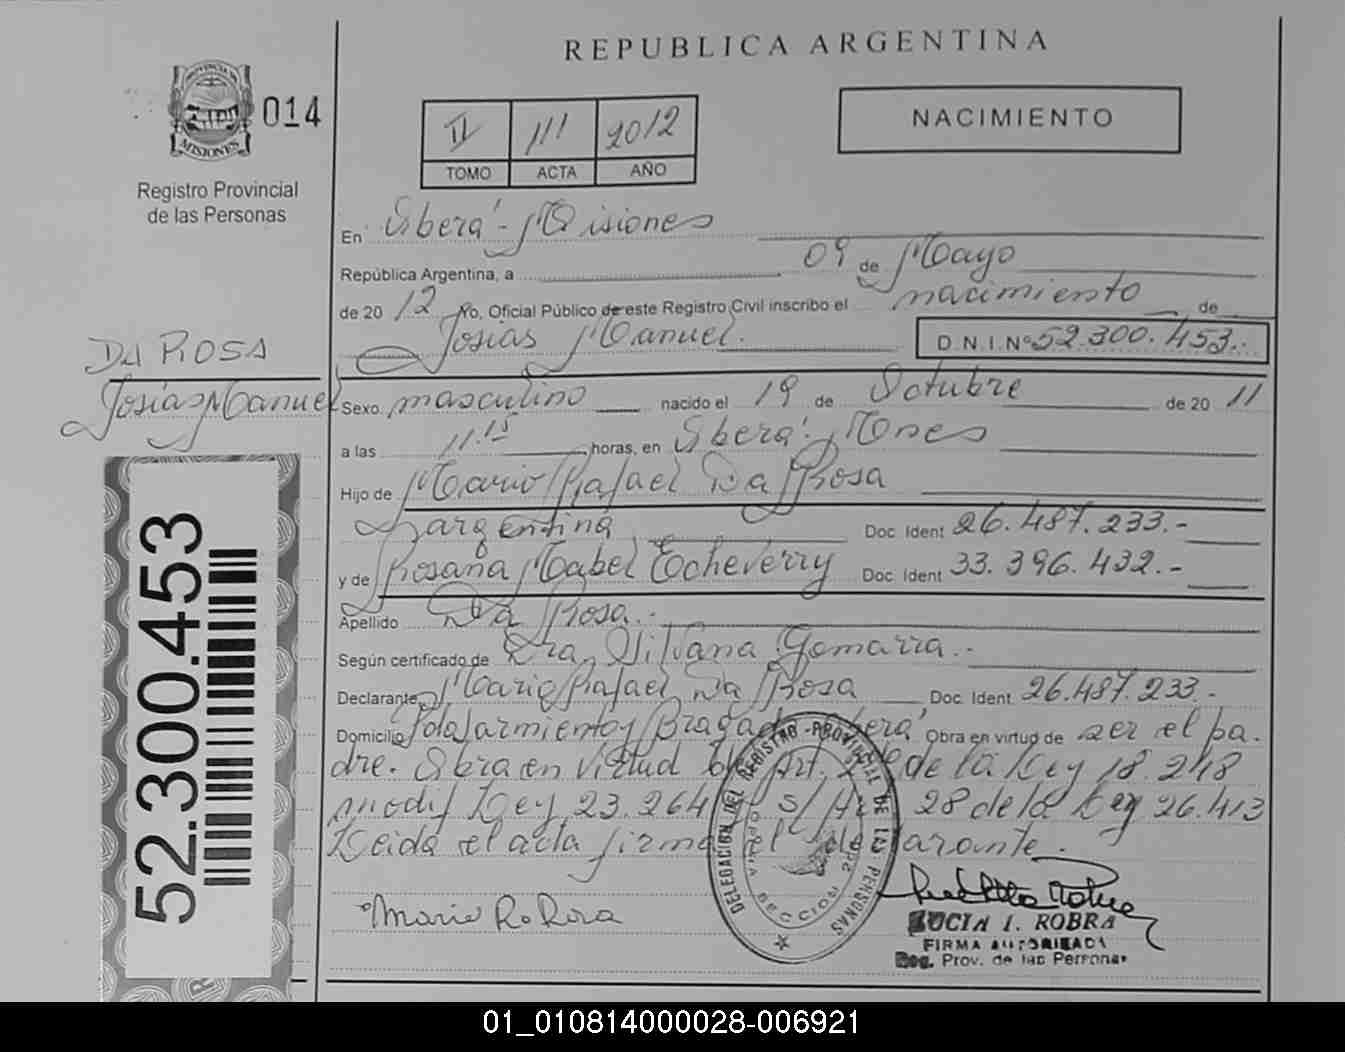 REPUBLICA ARGENTINA
014
PROVINCIA DE
MISIONES
Registro Provincial
de las Personas
II 111 2012
TOMO ACTA AÑO
NACIMIENTO
En Oberá - Misiones
República Argentina, a 09 de Mayo
de 2012 Yo, Oficial Público de este Registro Civil inscribo el nacimiento de
Josias Manuel. D.N.I.Nº 52.300.453.-
DA ROSA
Josias Manuel
Sexo masculino nacido el 19 de Octubre de 2011
a las 11.15 horas, en Oberá - Mnes
Hijo de Mario Rafael Da Rosa
argentina Doc Ident 26.487.233.-
y de Rosana Mabel Echeverry Doc Ident 33.396.432.-
Apellido Da Rosa.-
Según certificado de Dra. Silvana Gomarra.-
Declarante Mario Rafael Da Rosa Doc Ident 26.487.233.-
Domicilio Pola Sarmiento y Bragado Oberá Obra en virtud de ser el pa-
dre. Obra en virtud Art. de la Ley 18.248
modif Ley 23.264 y s/Art 28 de la Ley 26.413
Leida el acta firma el declarante.
Mario R. Da Rosa
DELEGACION DEL REGISTRO PROVINCIAL DE LAS PERSONAS
SECCION 2da
LUCIA I. ROBRA
FIRMA AUTORIZADA
Reg. Prov. de las Personas
52.300.453
01_010814000028-006921